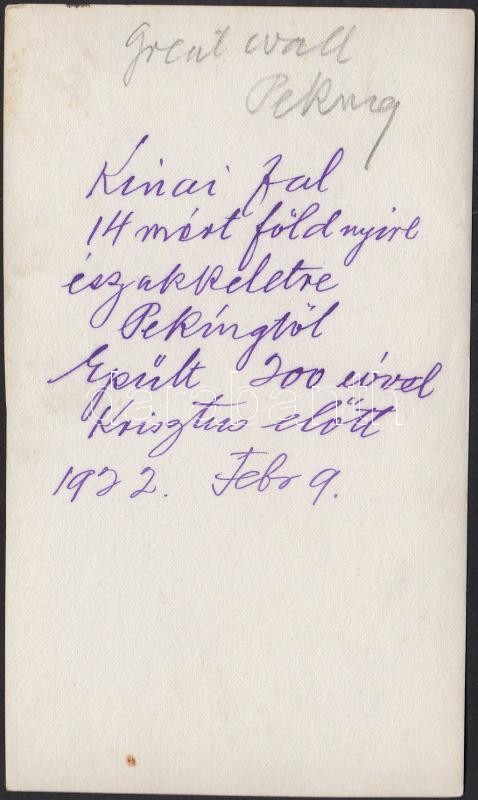 Great wall
Peking
Kinai fal
14 mért föld nyire
északkeletre
Pekingtől
Epült 200 évvel
Krisztus előtt
1922. Febr 9.
darabanth